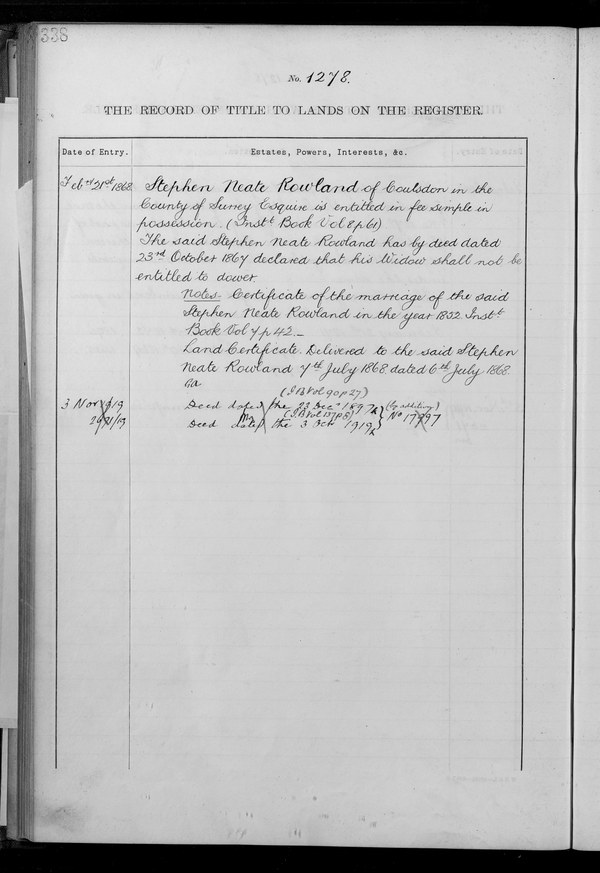 338
No. 1278.
THE RECORD OF TITLE TO LANDS ON THE REGISTER.
Date of Entry. Estates, Powers, Interests, &c.
Feby 21st 1868 Stephen Neate Rowland of Coulsdon in the
County of Surrey Esquire is entitled in fee simple in
possession. (Instt Book Vol 8 p 61)
The said Stephen Neate Rowland has by deed dated
23rd October 1867 declared that his Widow shall not be
entitled to dower.
Notes. Certificate of the marriage of the said
Stephen Neate Rowland in the year 1852 Instt
Book Vol 7 p 42.—
Land Certificate. Delivered to the said Stephen
Neate Rowland 7th July 1868 dated 6th July 1868.
(I B Vol 90 p 27)
3 Nov 1919 Deed dated the 22 Decr 1897
(I B Vol 137 p 8) No 17797
Deed dated the 3 Octr 1919